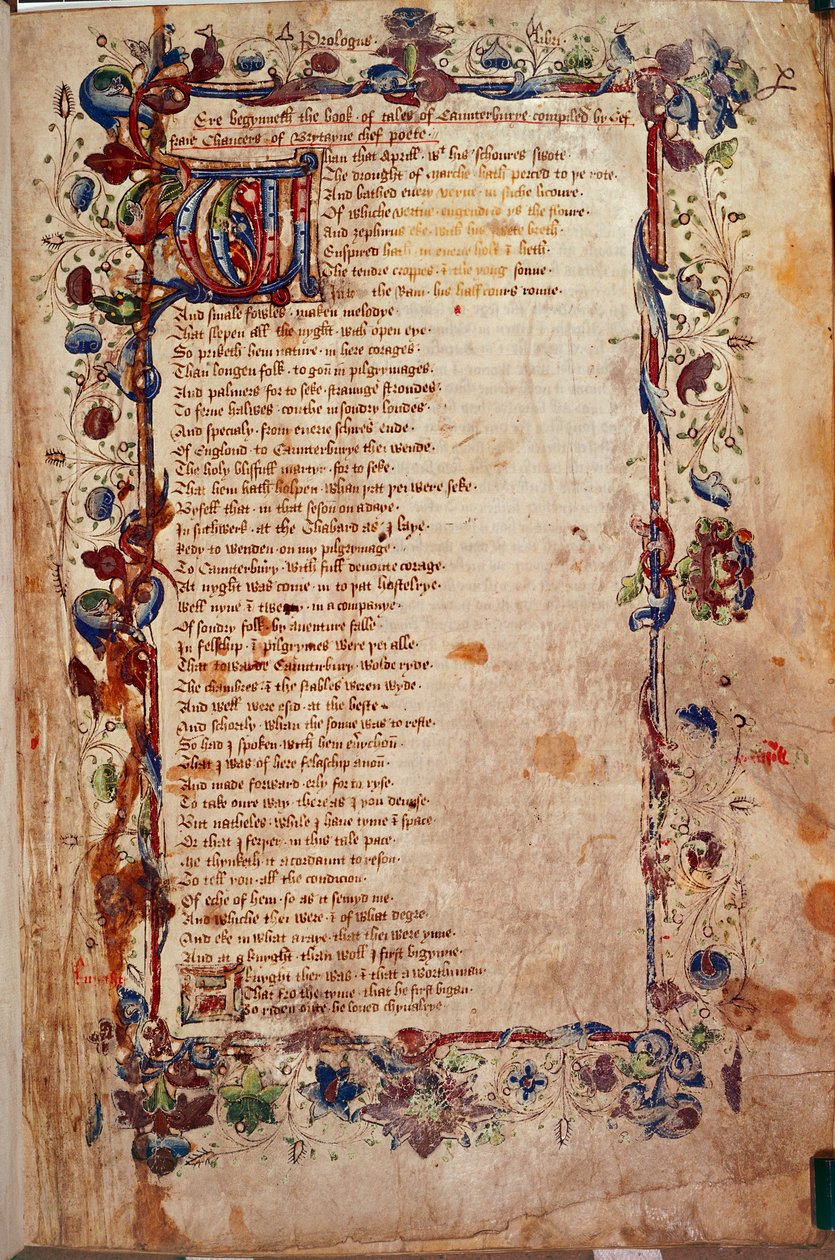 Prologus · libri ·
Ere begynneth the book · of tales · of Caunterburye compiled by Gef
fraie Chaucers · of Brytayne chef poete ·
Whan that Aprill · wt his schoures swote ·
The drought of Marche hath perced to ye rote ·
And bathed euery veyne · in suche licoure ·
Of whiche vertue engendrid ys the floure ·
And zephirus eke with his swete breth ·
Enspired hath in euerie holt & heth ·
The tendre croppes & the yong sonne ·
Into the Ram his half cours ronne ·
And smale fowles · maken melodye ·
That slepen all the nyght · with open eye ·
So priketh hem nature · in here corages ·
Than longen folk · to gon in pilgrymages ·
And palmers for to seke · straunge strondes ·
To ferne halwes couthe in sondry londes ·
And specialy · from euerie schires ende ·
Of Englond · to Caunterburye thei wende ·
The holy blisfull martyr · for to seke ·
That hem hath holpen · whan yat yei were seke ·
Byfell that · in that seson on a daye ·
In suthwerk · at the Thabard as I laye ·
Redy to wenden · on my pilgrymage ·
To Caunterbury · with full deuoute corage ·
At nyght was come · in to yat hostelrye ·
Well nyne & twenty · in a companye ·
Of sondry folk · by auenture falle
In felschip · & pilgrymes were yei alle ·
That towarde Caunturbury · wolde ryde ·
The chambres · & the stables weren wyde ·
And well were esid · at the beste
And schortly · whan the sonne was to reste ·
So had I spoken · with hem euerychon ·
That I was of here felaschip anon ·
And made forward · erly · for to ryse ·
To take oure way · there as I you deuyse ·
But natheles · while I haue tyme & space ·
Or that I feryer · in this tale pace ·
Me thynketh it acordaunt to reson ·
To tell you · all the condicion ·
Of eche of hem · so as it semyd me ·
And whiche thei were · & of what degre ·
And eke in what araye · that thei were ynne ·
And at a knyght · than woll I first bigynne ·
knyght
A knyght ther was · & that a worthi man
That fro the tyme · that he first bigan
To riden oute · he loued chyualrye ·